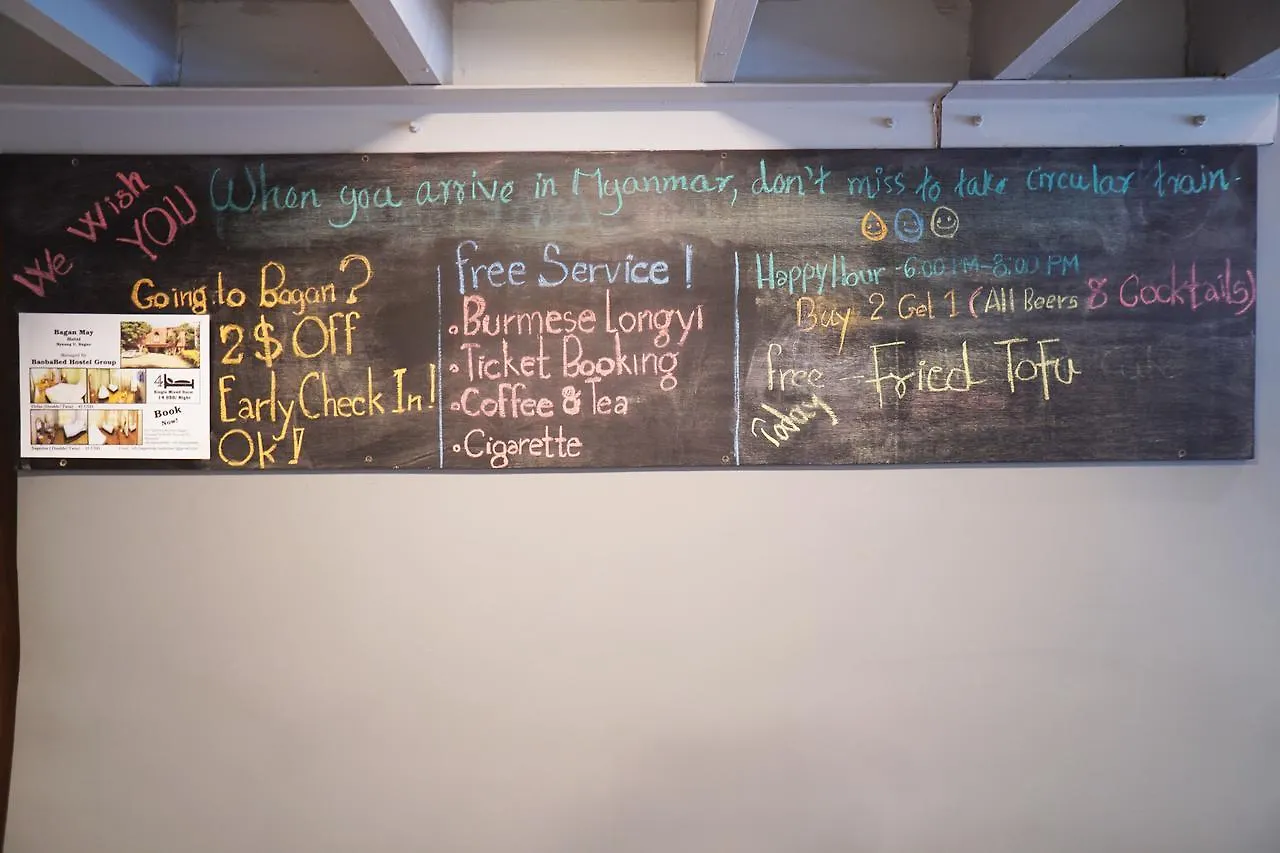 We Wish
YOU
When you arrive in Myanmar, don't miss to take circular train.
Going to Bagan?
2$ Off
Early Check In!
Ok!
Bagan May
Hotel
Managed by
BaobaBed Hostel Group
4
Single Mixed Dorm
14 USD/Night
Book
Now!
free Service!
•Burmese Longyi
•Ticket Booking
•Coffee & Tea
•Cigarette
Happy Hour -6:00 PM-8:00 PM
Buy 2 Get 1 (All Beers & Cocktails)
free Fried Tofu
Today